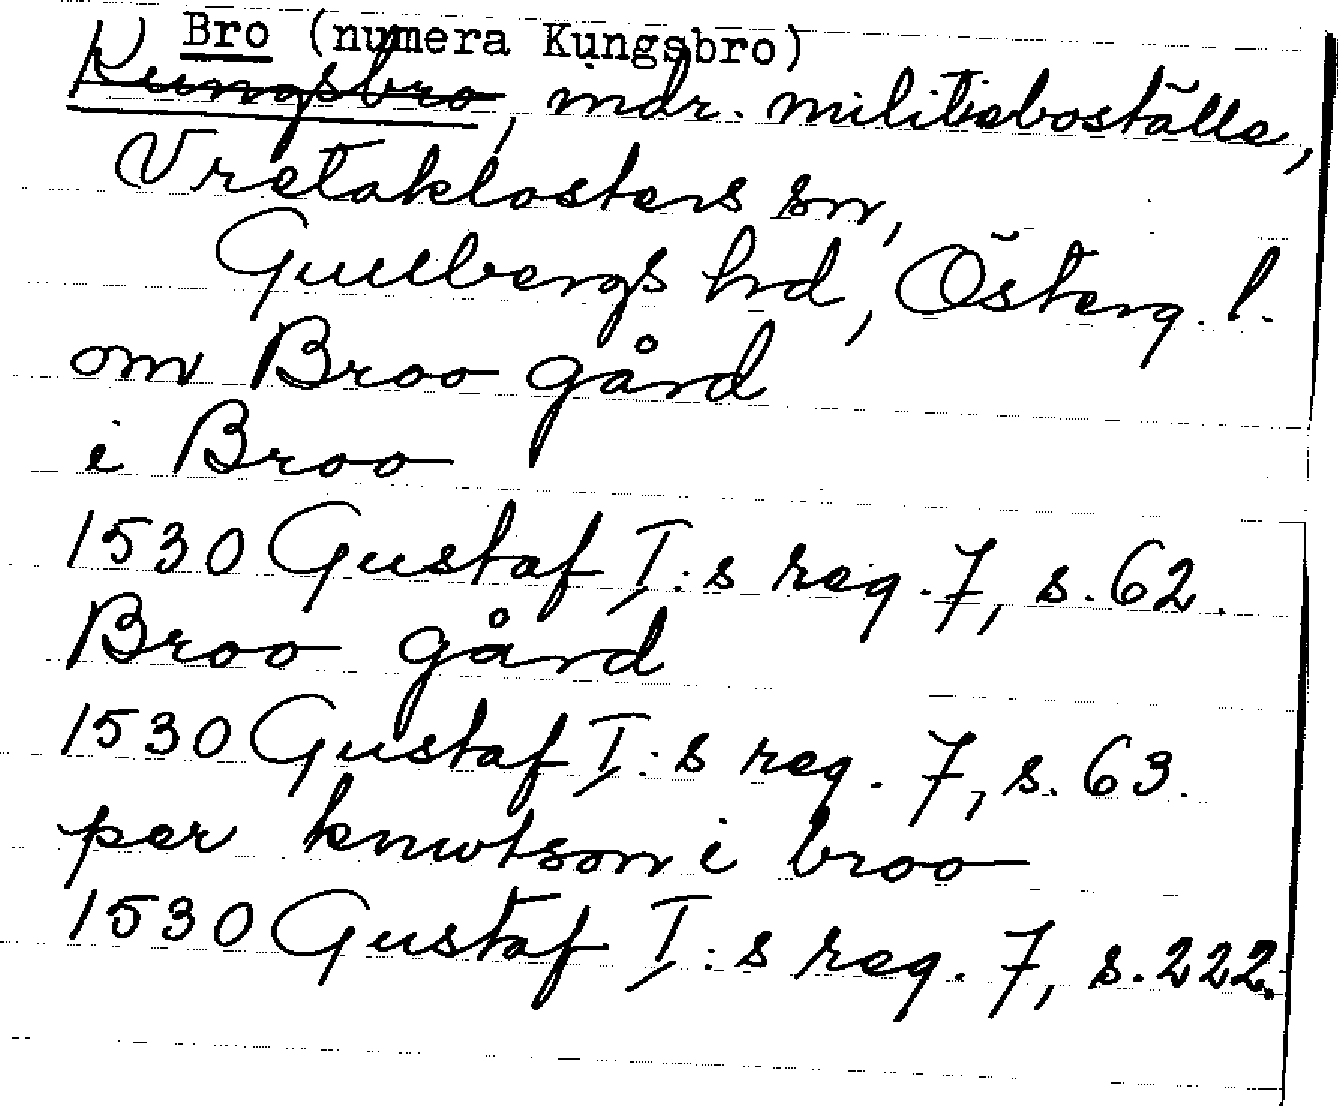 Bro (numera Kungsbro)
Kungsbro, mdr. militieboställe,
Vretaklosters sn,
Gullbergs hd, Österg. l.
om Broo gård
i Broo
1530 Gustaf I:s reg. 7, s. 62.
Broo gård
1530 Gustaf I:s reg. 7, s. 63.
per knwtson i broo
1530 Gustaf I:s reg. 7, s. 222.